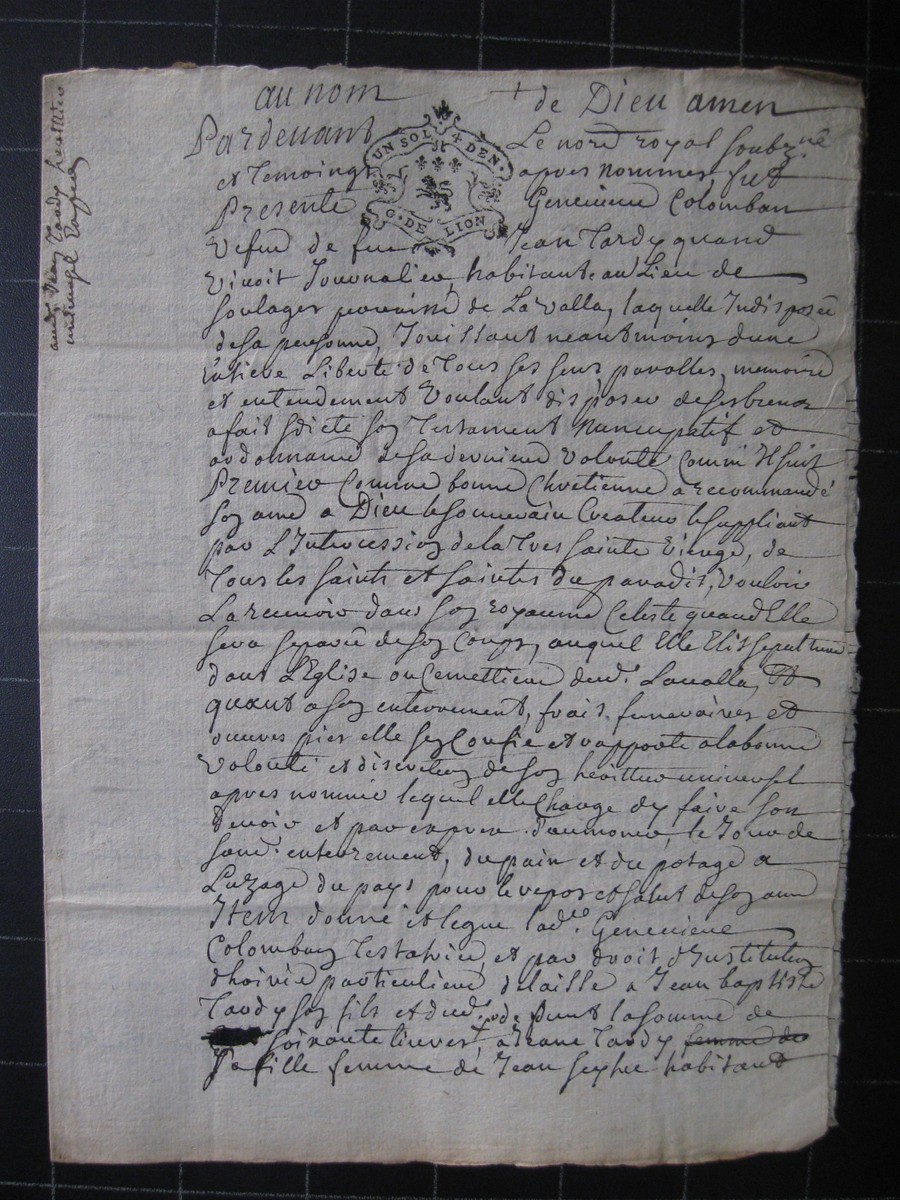 au nom + de Dieu amen
Pardevant Le nore royal soubzne
et temoingt apres nommes fut
Presente Genevieve Colomban
Vefue de feu Jean Tardy quand
vivoit Journalier, habitante au Lieu de
soulages parroisse de La valla, laquelle Indisposée
de sa personne, Jouissant neantmoins dune
entiere Liberté de tous ses sens parolles, memoire
et entendement Voulant disposer de ses biens
a fait & dicté son Testament Nuncupatif et
ordonnance de sa derniere volonté Comm' Il suit
Premier Comme bonne Chretienne a recommandé
son ame a Dieu le souverain Createur le suppliant
par L'Intercession de la tres sainte vierge, de
tous les saints et saintes du paradis, vouloir
La recevoir dans son royaume Celeste quand Elle
sera separée de son Corps, auquel Elle Elit sepulture
dans L'Eglise ou Cemettiere dud. Lavalla, Et
quant a son enterrement, frais funeraires et
oeuvres pies elle sen Confie et rapporte a la bonne
volonté et discretion de son herittier universel
apres nommé lequel elle Charge dy faire son
devoir et par exprex d'aumoner, le Jour de
sond. enterrement, du pain et du potage a
Luzage du pays pour le repos et salut de son ame
Item donne et legue lade. Genevieve
Colomban testatrice, et par droit d'Institution
dhoirie particuliere delaisse a Jean baptiste
Tardy son fils et dud. defunt la somme de
soixante livres + a Jeane Tardy femme de
sa fille femme de Jean habitant
aud. Jean Tardy herittier